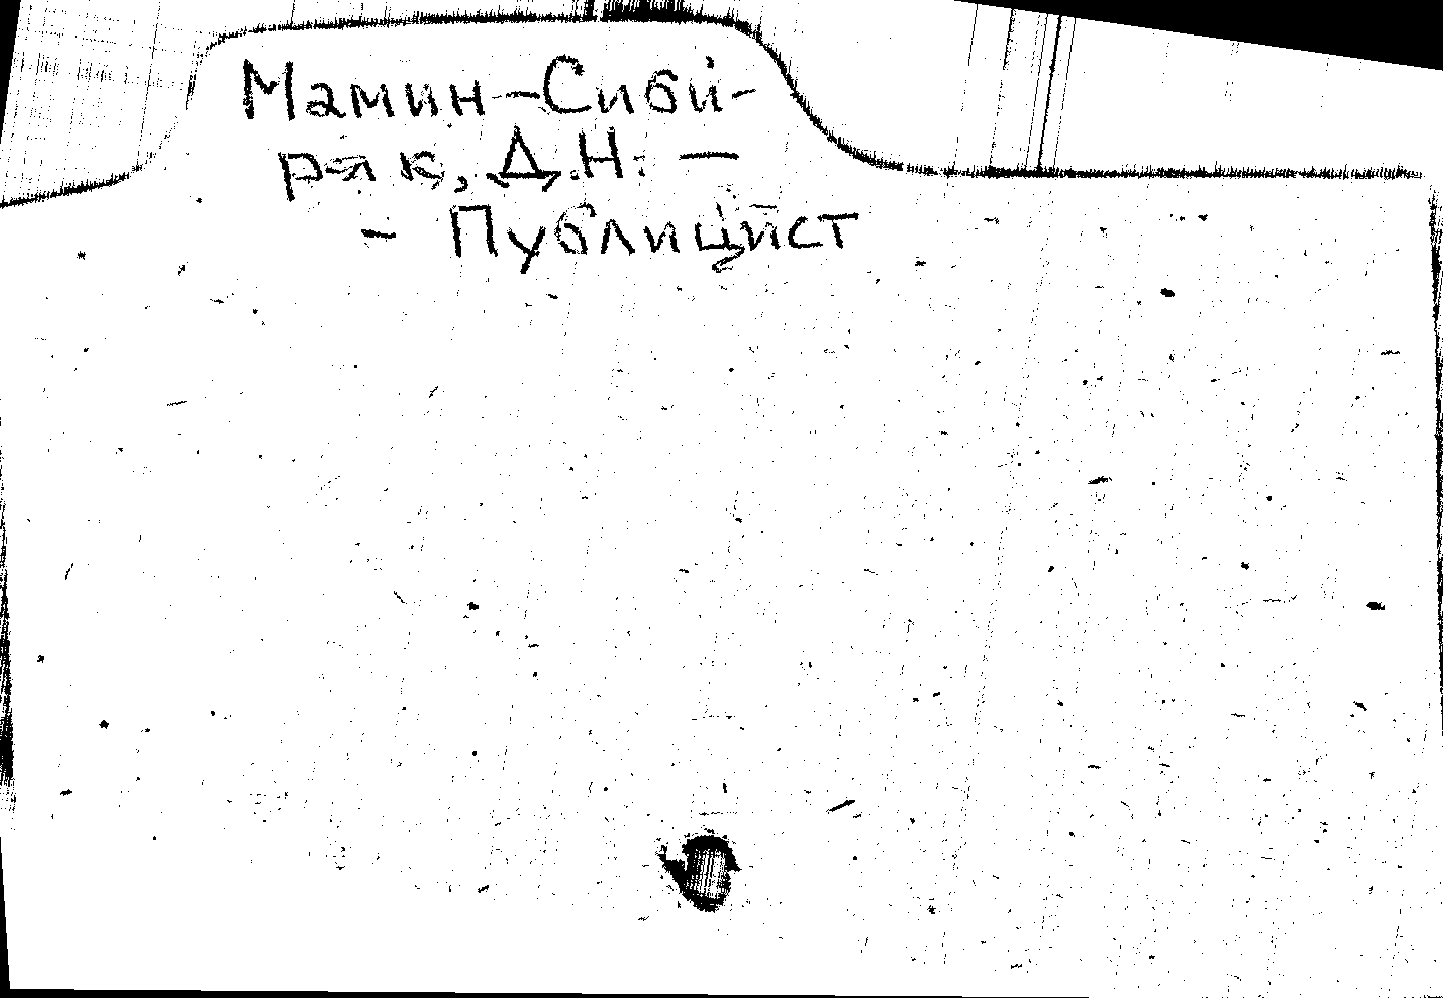 Мамин-Сиби-
ряк, Д.Н. —
- Публицист